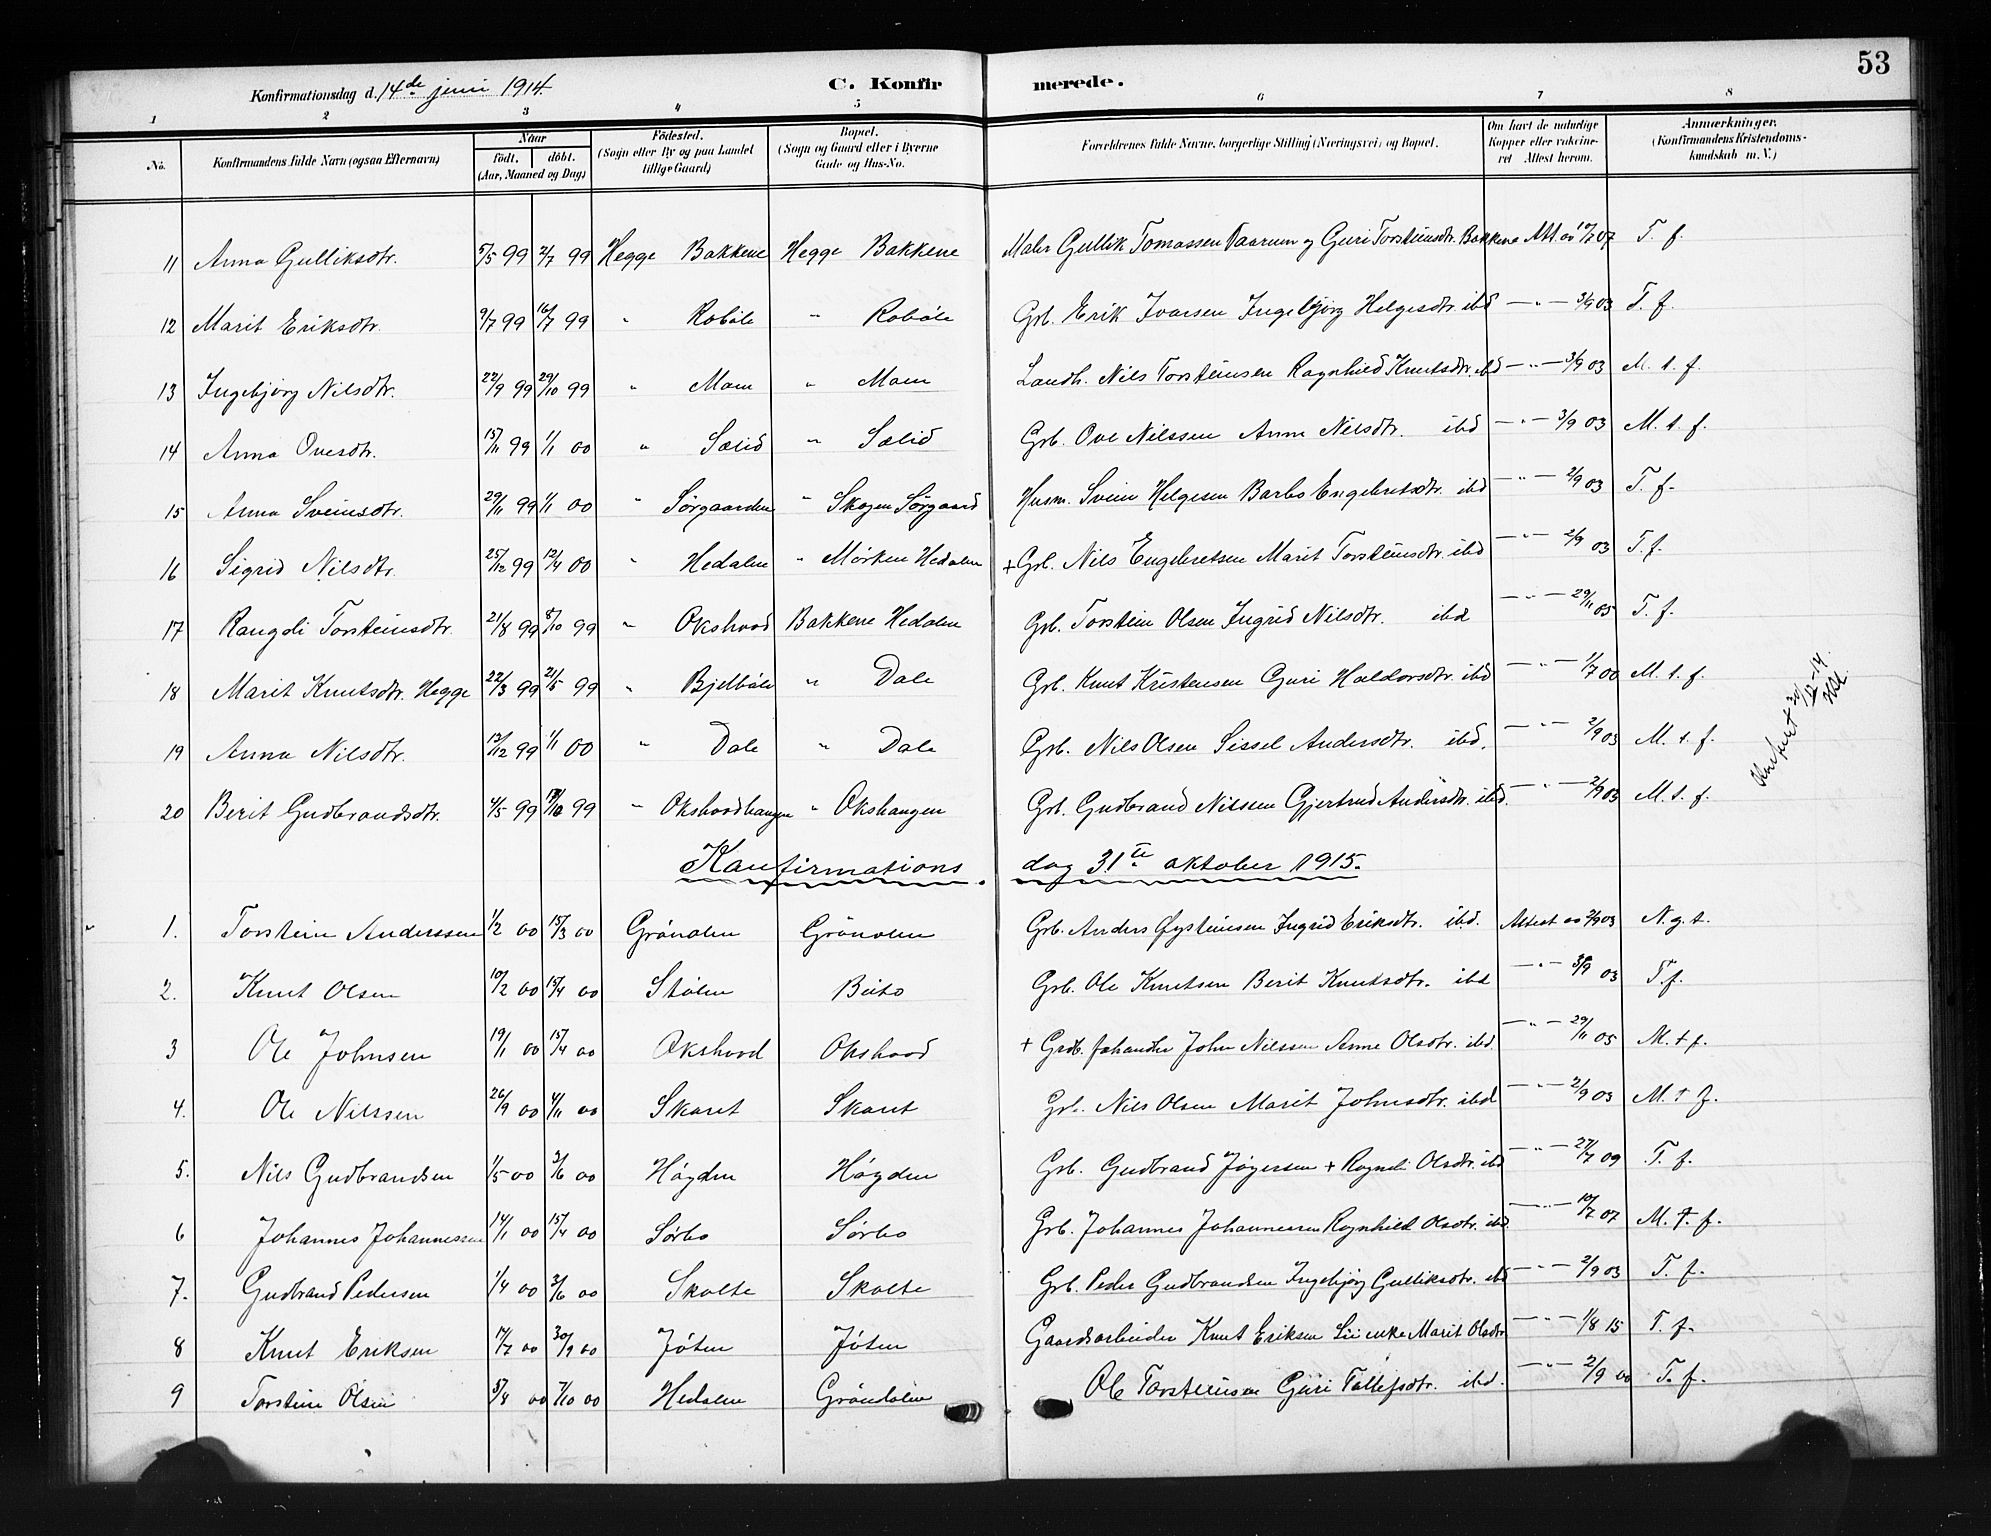 53
Konfirmationsdag d. 14de juni 1914. C. Konfirmerede.
1 2 3 4 5 6 7 8
No. Konfirmandens fulde Navn (ogsaa Efternavn) Naar født. døbt. (Aar, Maaned og Dag) Fødested. (Sogn eller By og paa Landet tillige Gaard) Bopæl. (Sogn og Gaard eller i Byerne Gade og Hus-No. Forældrenes fulde Navne, borgerlige Stilling (Næringsvei) og Bopæl. Om havt de naturlige Kopper eller vaksineret Attest herom. Anmærkninger. (Konfirmandens Kristendomskundskab m. V.)
11 Anna Gulliksdtr. 5/5 99 2/7 99 Hegge Bakkene Hegge Bakkene Maler Gullik Tomassen Paarum og Guri Torsteinsdtr. Bakkene Att. av 10/7 07 T. f.
12 Marit Eriksdtr. 9/7 99 16/7 99 " Robøle " Robøle Grb. Erik Ivarsen Ingebjørg Helgesdtr. ibd — " — 3/9 03 T. f.
13 Ingebjørg Nilsdtr. 22/9 99 29/10 99 " Moen " Moen Landh. Nils Torsteinsen Ragnhild Knutsdtr. ibd — " — 3/9 03 M. t. f.
14 Anna Ovesdtr. 15/11 99 1/1 00 " Sælid " Sælid Grb. Ove Nilssen Anne Nilsdtr. ibd — " — 3/9 03 M. t. f.
15 Anna Sveinsdtr. 29/11 99 1/1 00 " Sørgaarden " Skogen Sørgaard Husm. Svein Helgesen Barbo Engebretsdtr. ibd — " — 2/9 03 T. f.
16 Sigrid Nilsdtr. 25/12 99 12/4 00 " Hedalen " Mørken Hedalen + Grb. Nils Engebretsen Marit Torsteinsdtr. ibd — " — 2/9 03 T. f.
17 Rangdi Torsteinsdtr. 21/8 99 8/10 99 " Okshovd Bakkene Hedalen Grb. Torstein Olsen Ingrid Nilsdtr. ibd — " — 29/11 05 T. f.
18 Marit Knutsdtr. Hegge 22/3 99 21/5 99 " Bjelbøle " Dale Grb. Knut Kristensen Guri Haldorsdtr. ibd — " — 1/7 00 M. t. f.
19 Anna Nilsdtr. 12/12 99 1/1 00 " Dale " Dale Grb. Nils Olsen Sissel Andersdtr. ibd. — " — 2/9 03 M. t. f.
20 Berit Gudbrandsdtr. 4/5 99 99 " Okshovdhaugen " Okshaugen Grb. Gudbrand Nilssen Gjertrud Andersdtr. ibd. — " — 2/9 03 M. t. f.
20/12 -14.
Konfirmations dag 31te oktober 1915.
1. Torstein Anderssen 1/2 00 15/3 00 Grønolen Grønolen Grb. Anders Øysteinsen Ingrid Eriksdtr. ibd. Attest av 2/9 03 N. g. t.
2. Knut Olsen 10/2 00 15/4 00 Stølen Beito Grb. Ole Knutsen Berit Knutsdtr. ibd — " — 3/9 03 T. f.
3 Ole Johnsen 19/1 00 15/4 00 Okshovd Okshovd + Grdb. John Nilssen Anne Olsdtr. ibd. — " — 29/11 05 M. t f.
4. Ole Nilssen 26/9 00 4/11 00 Skaret Skaret Grb. Nils Olsen Marit Johnsdtr. ibd — " — 2/9 03 M. t f.
5. Nils Gudbrandsen 1/5 00 3/6 00 Høyden Høyden Grb. Gudbrand Jøgersen + Ragndi Olsdtr. ibd — " — 27/7 09 T. f.
6 Johannes Johannessen 14/1 00 15/4 00 Sørbo Sørbo Grb. Johannes Johannessen Ragnhild Olsdtr. ibd. — " — 10/7 07 M. t. f.
7. Gudbrand Pedersen 1/4 00 3/6 00 Skolte Skolte Grb. Peder Gudbrandsen Ingebjørg Gulliksdtr. ibd — " — 2/9 03 T. f.
8 Knut Eriksen 17/7 00 30/9 00 Jøten Jøten Gaardsarbeider Knut Eriksen Lii enke Marit Olsdtr — " — 1/8 15 T. f.
9 Torstein Olsen 5/8 00 7/10 00 Hedalen Grøndalen Ole Torsteinsen Guri Tollefsdtr. ibd. — " — 2/9 00 T. f.